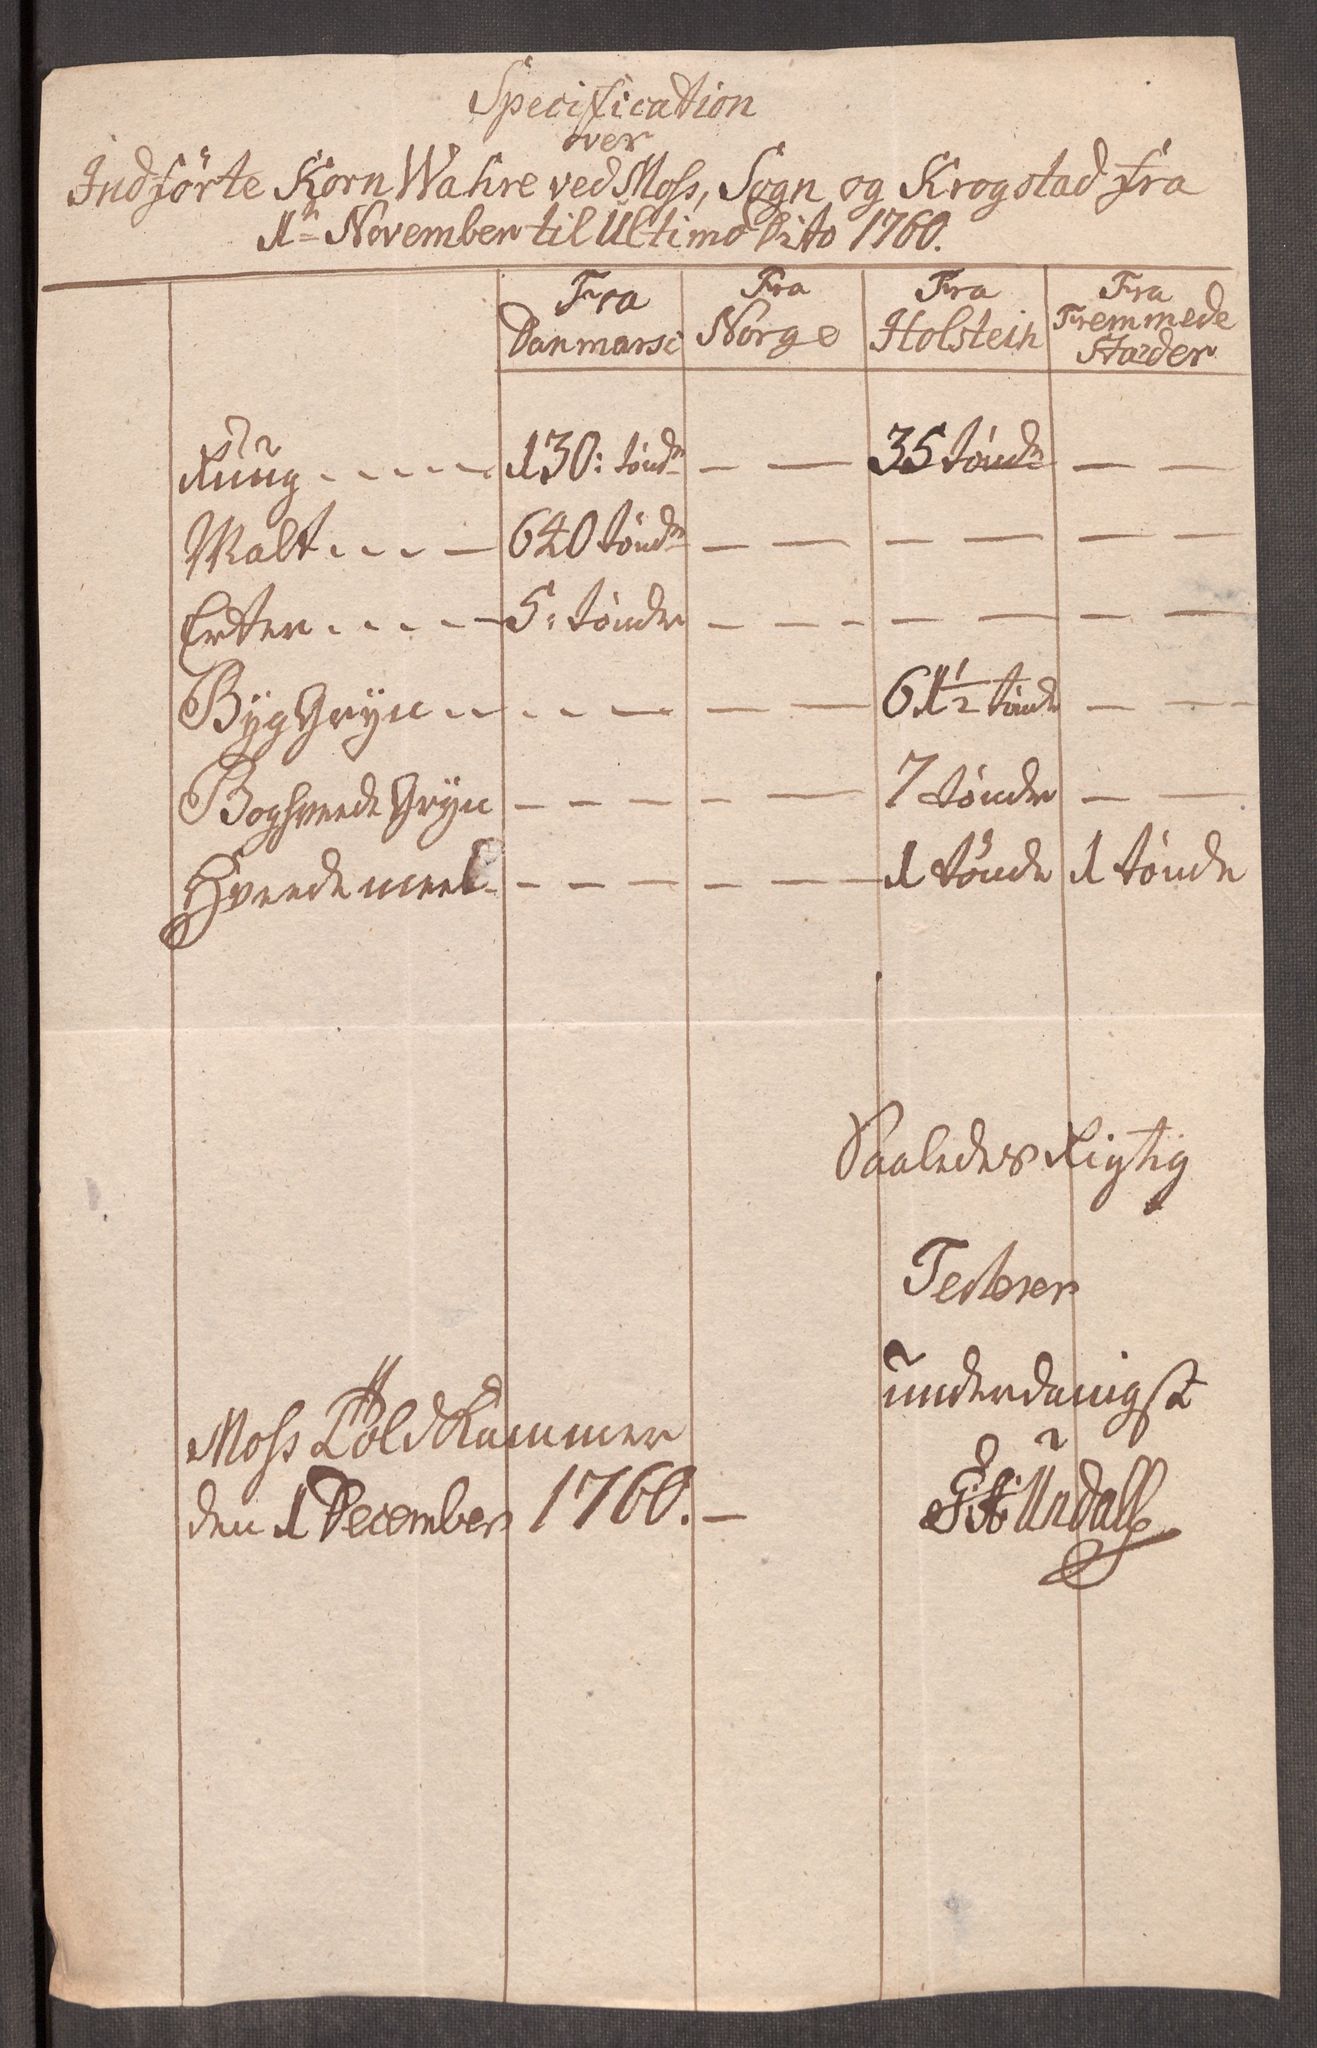 Specification
over
Indförte Korn Wahre ved Moss, Sogn og Krogstad fra
1n November til Ultimo Dito 1760.
Fra Danmarsc | Fra Norge | Fra Holstein | Fra Fremmede Stæder
Rüüg - - - - - 130: töndr — — 35 töndr — —
Malt - - - - 640 töndr — — — — — —
Erter - - - - - 5: tönder — — — — — —
Byg Gryn - - - - - — — 61 1/2 tönde — —
Boghveede Gryn - - - — — 7 tönder — —
Hveede meel - - - - — — 1 tönde 1 tönde
Saaledes Rigtig
Testerer
underdanigst
Moss Told Kammer
den 1 December 1760. —
Undall